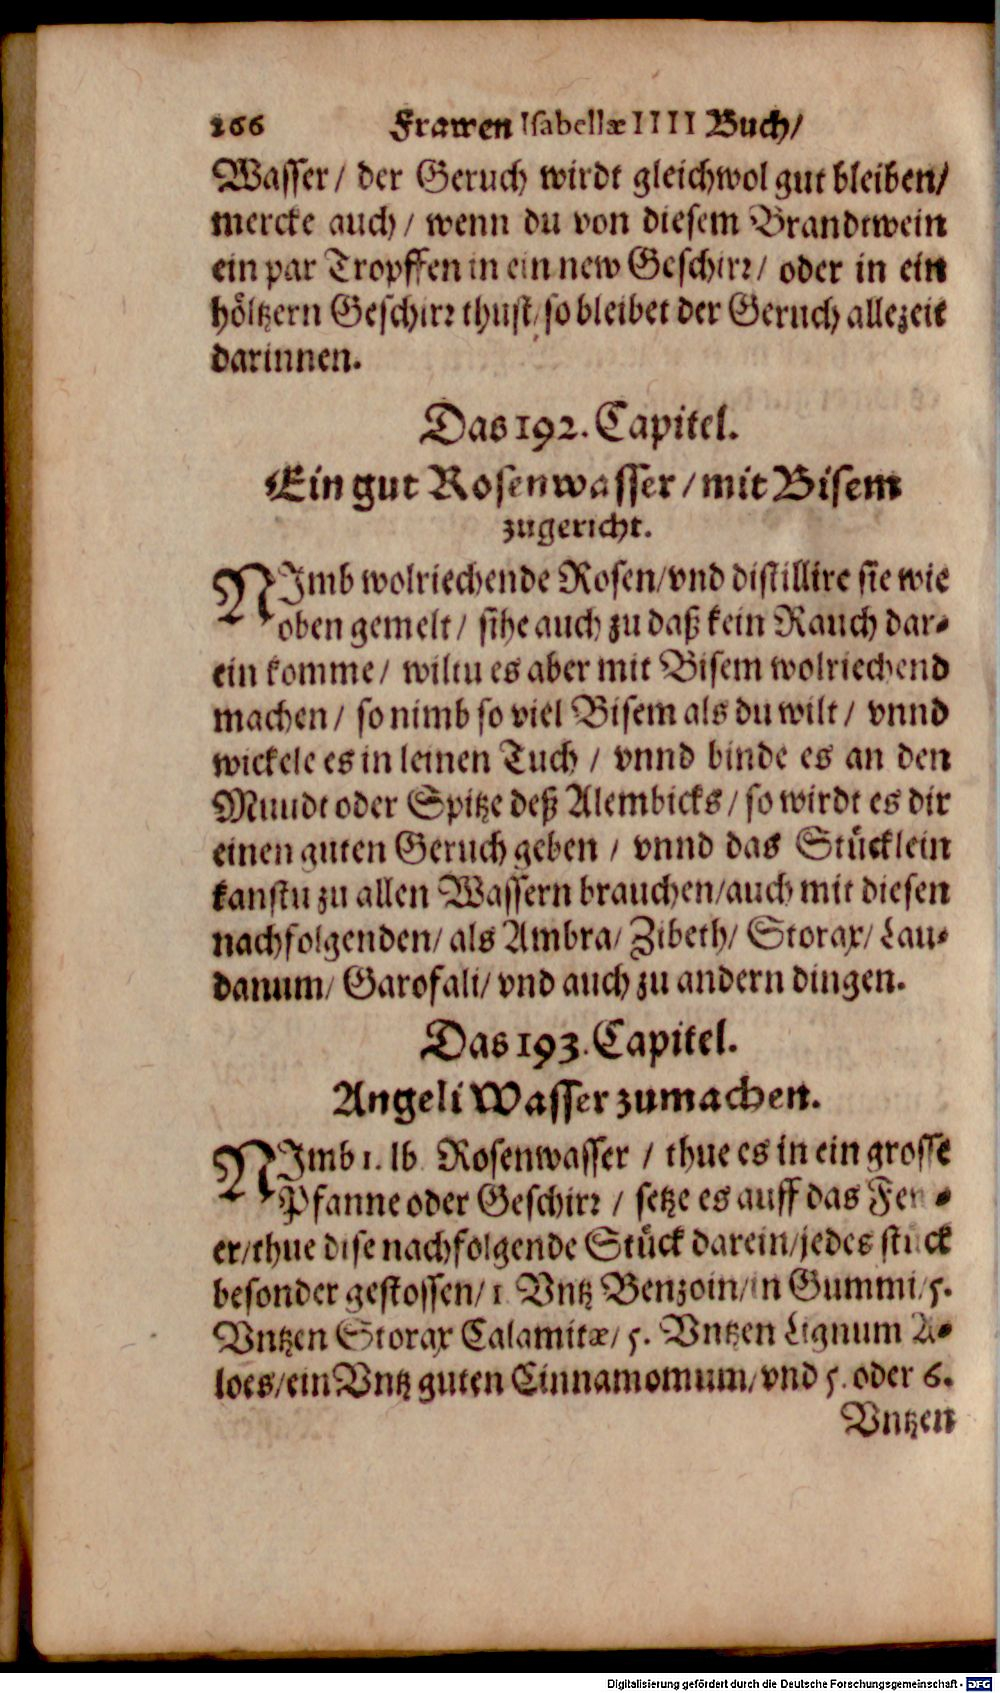 266 Frawen Isabellæ IIII Buch/
Wasser/ der Geruch wirdt gleichwol gut bleiben/
mercke auch/ wenn du von diesem Brandtwein
ein par Tropffen in ein new Geschirr/ oder in ein
höltzern Geschirr thust/ so bleibet der Geruch allezeit
darinnen.
Das 192. Capitel.
Ein gut Rosenwasser/ mit Bisem
zugericht.
NImb wolriechende Rosen/ vnd distillire sie wie
oben gemelt/ sihe auch zu daß kein Rauch dar-
ein komme/ wiltu es aber mit Bisem wolriechend
machen/ so nimb so viel Bisem als du wilt/ vnnd
wickele es in leinen Tuch/ vnnd binde es an den
Mundt oder Spitze deß Alembicks/ so wirdt es dir
einen guten Geruch geben/ vnnd das Stücklein
kanstu zu allen Wassern brauchen/ auch mit diesen
nachfolgenden/ als Ambra/ Zibeth/ Storax/ Lau-
danum/ Garofali/ vnd auch zu andern dingen.
Das 193. Capitel.
Angeli Wasser zumachen.
NImb 1. lb. Rosenwasser/ thue es in ein grosse
Pfanne oder Geschirr/ setze es auff das Few-
er/ thue dise nachfolgende Stück darein/ jedes stück
besonder gestossen/ 1. Vntz Benzoin/ in Gummi/ 5.
Vntzen Storax Calamitæ/ 5. Vntzen Lignum A-
loes/ ein Vntz guten Cinnamomum/ vnd 5. oder 6.
Vntzen
Digitalisierung gefördert durch die Deutsche Forschungsgemeinschaft - DFG